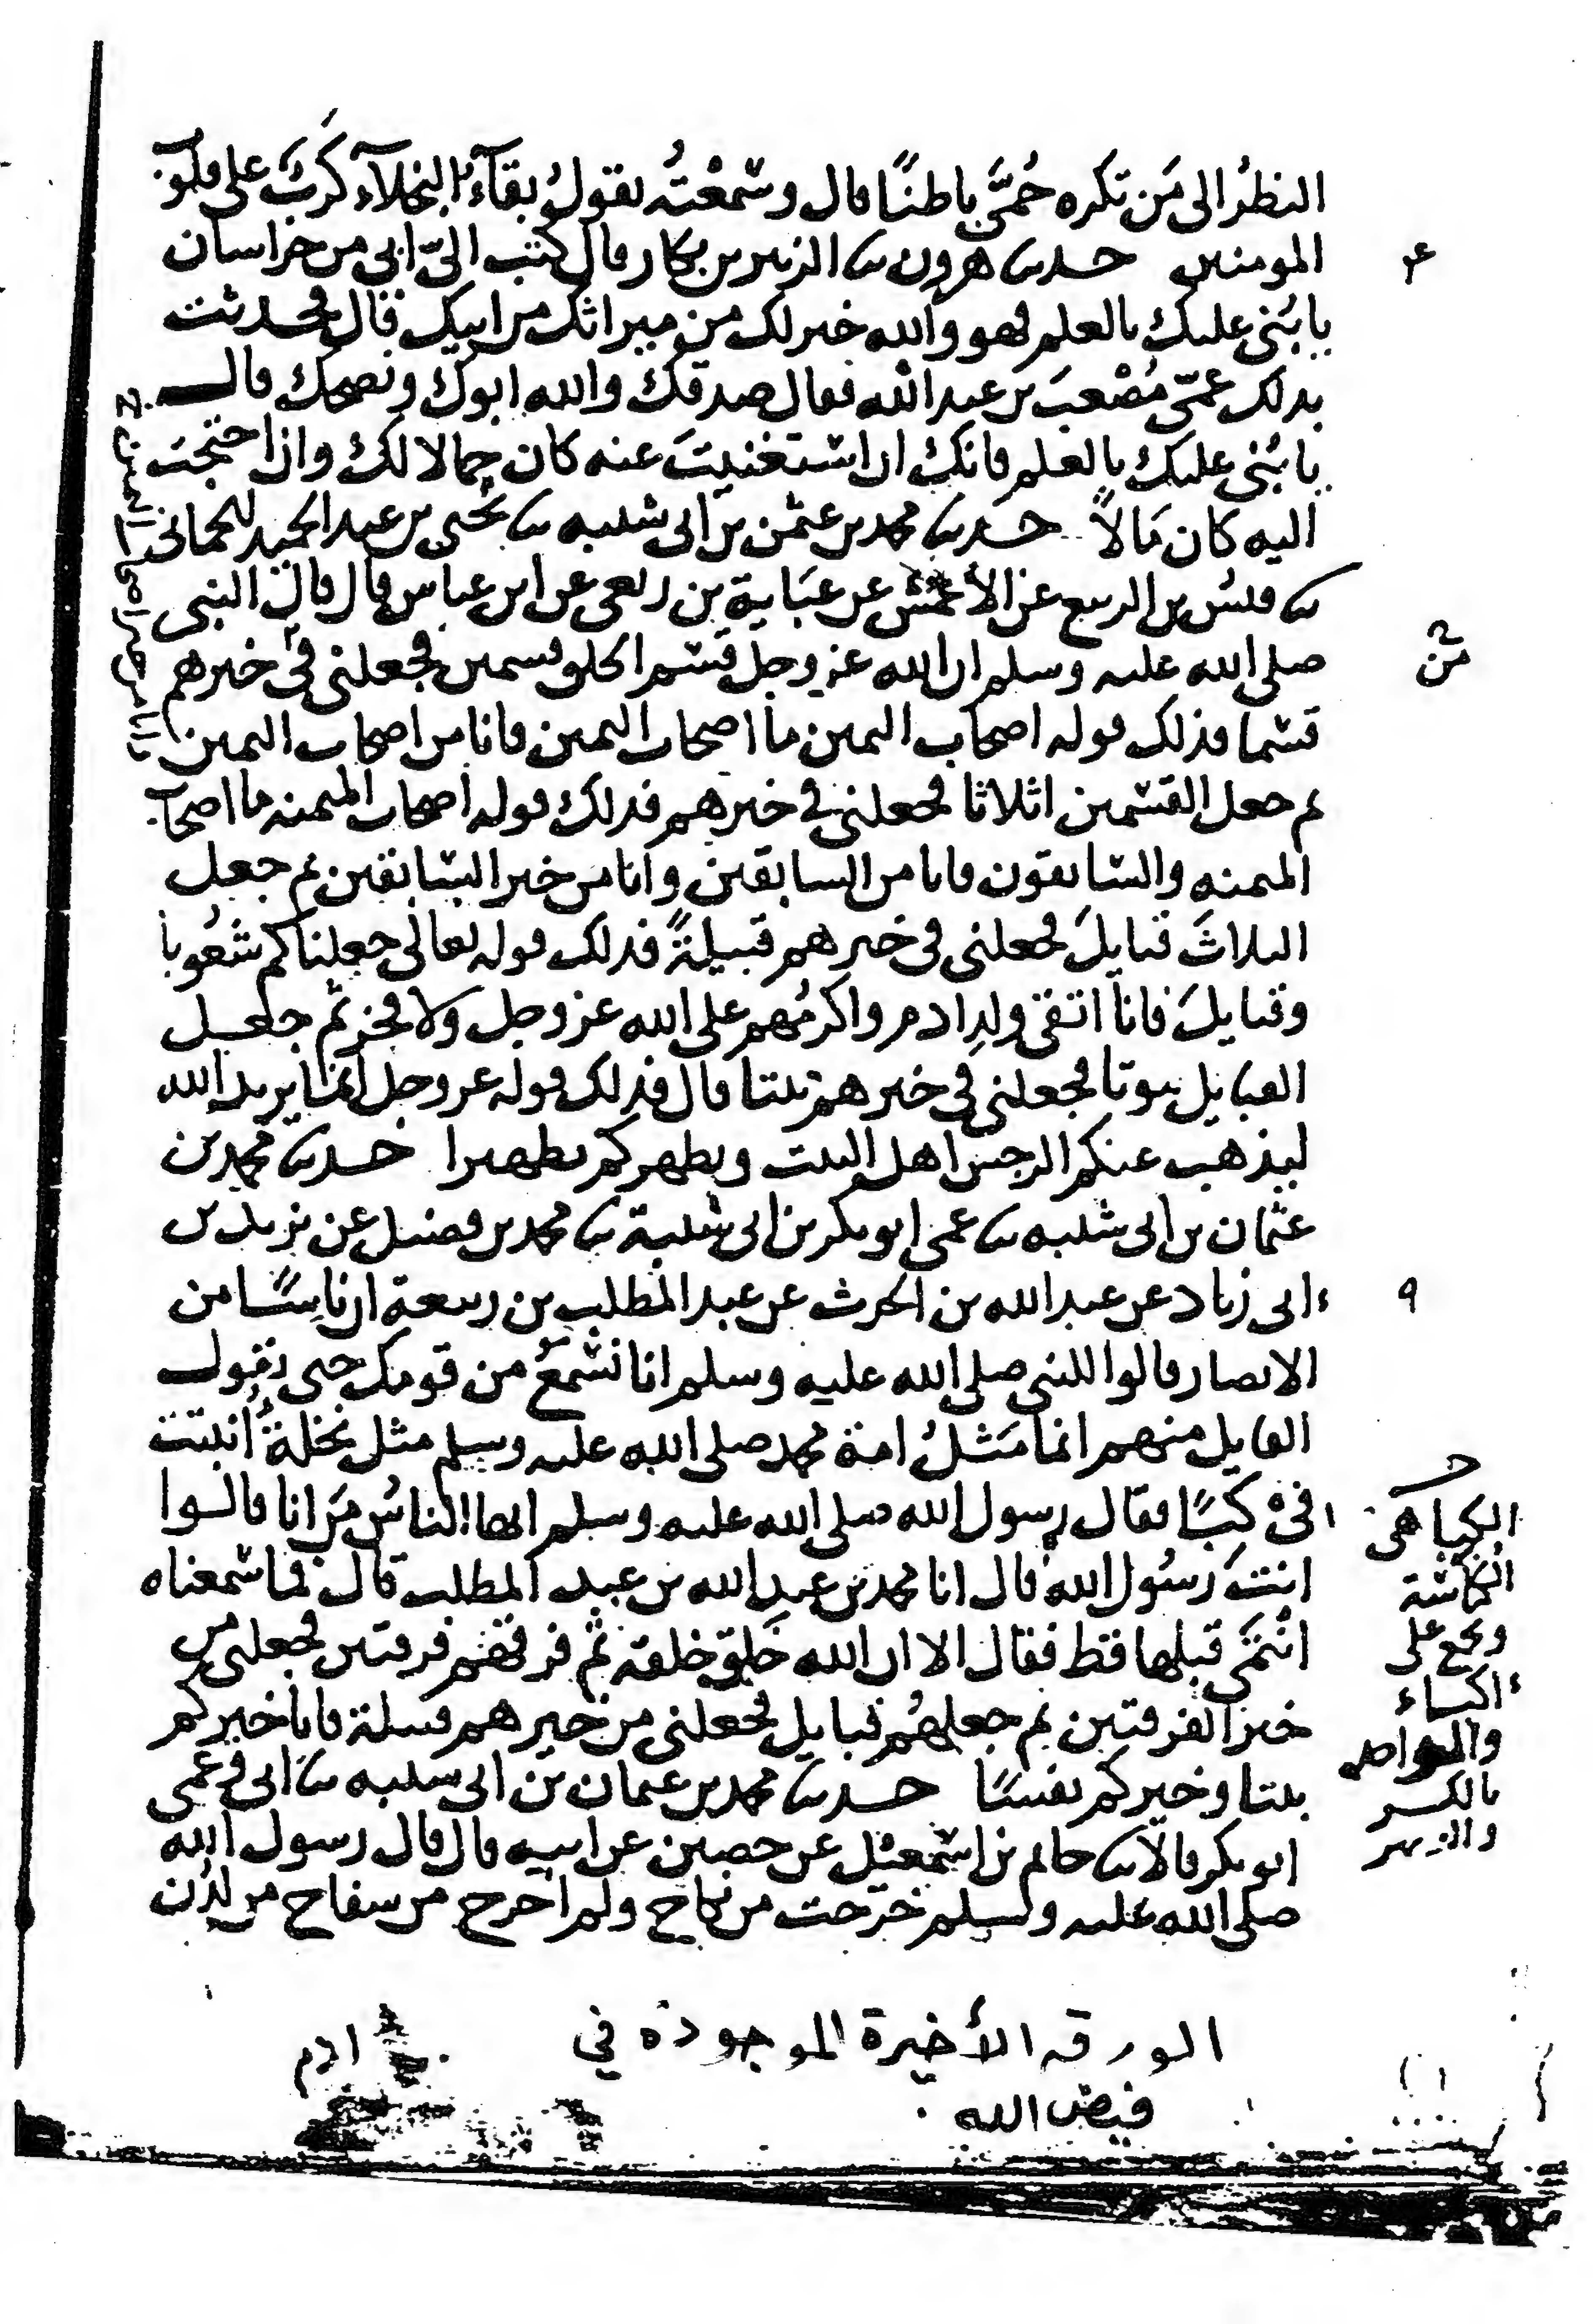 النظرُ الى مَن تكره حُمَّى باطنًا قال وسَمعْتُه يقولُ بقآءُ البخلآءِ كَرْبٌ على قلوب
المومنين حدثنا هرون نا الزبير بن بكار قال كتب اليّ ابي من خراسان
يا بُنَي عليك بالعلم فهو والله خير لك من ميراثك من ابيك قال فحدثت
بذلك عمّي مُصْعَبَ بن عبد الله فقال صدقك والله ابوك ونصحك قال
يا بُنَي عليك بالعلم فانك ان استغنيتَ عنه كان جمالا لك وان احتجتَ
اليه كان مَالاً حدثنا محمد بن عثمن بن ابى شيبه نا يحيى بن عبد الحميد الحماني
نا قيسُ بن الربيع عن الأعمش عن عَبَاية بن ربعى عن ابن عباس قال قال النبي
صلى الله عليه وسلم ان الله عز وجل قسَم الخلق قسمين فجعلني في خيرهم
قسْما فذلك قوله اصحاب اليمين ما اصحاب اليمين فانا من اصحاب اليمين
ثم جعل القسْمين اثلاثا فجعلني في خيرهم فذلك قوله اصحاب الميمنه ما اصحاب
الميمنه والسّابقون فانا من السابقين وانا من خير السّابقين ثم جعل
الثلاثَ قبايلَ فجعلني في خيرهم قبيلةً فذلك قوله تعالى جعلناكم شعُوبا
وقبايلَ فانا اتقى ولدِ ادم واكرمُهم على الله عز وجل ولا فخر ثم جعل
القبايل بيوتا فجعلني في خيرهم بيتا قال فذلك قوله عز وجل انما يريد الله
ليذهب عنكم الرجس اهل البيت ويطهركم تطهيرا حدثنا محمد بن
عثمان بن ابى شيبه نا عمى ابو بكر بن ابى شيبة نا محمد بن فضيل عن يزيد بن
ابى زياد عن عبد الله بن الحرث عن عبد المطلب بن ربيعة ان ناسًا من
الانصار قالوا للنبي صلى الله عليه وسلم انا نسْمعُ من قومك حتى يقول
القايل منهم انما مَثَلُ امة محمد صلى الله عليه وسلم مثل نخلةٍ اُنبتت
فى كِبًا فقال رسول الله صلى الله عليه وسلم ايها الناسُ مَن انا قالوا
انتَ رسُول الله قال انا محمد بن عبد الله بن عبد المطلب قال فما سَمعناه
انْتَمَى قبلها قط فقال الا ان الله خَلق خلقه ثم فرقهم فرقتين فجعلني من
خير الفرقتين ثم جعلهُم قبايل فجعلني من خيرهم قبيلة فانا خيركم
بيتا وخيركم نفسًا حدثنا محمد بن عثمان بن ابى شيبه نا ابى وعمى
ابو بكر قالا نا حاتم بن اسْمعيل عن حصين عن ابيه قال قال رسول الله
صلى الله عليه وسلم خرَجت من نكاح ولم اخرج من سفاح من لدُن
ادم
من
٩
الكبا هي
الكناسة
ويجمع على
اكباء
بالكسر
الورقه الأخيرة الموجودة في
فيض الله